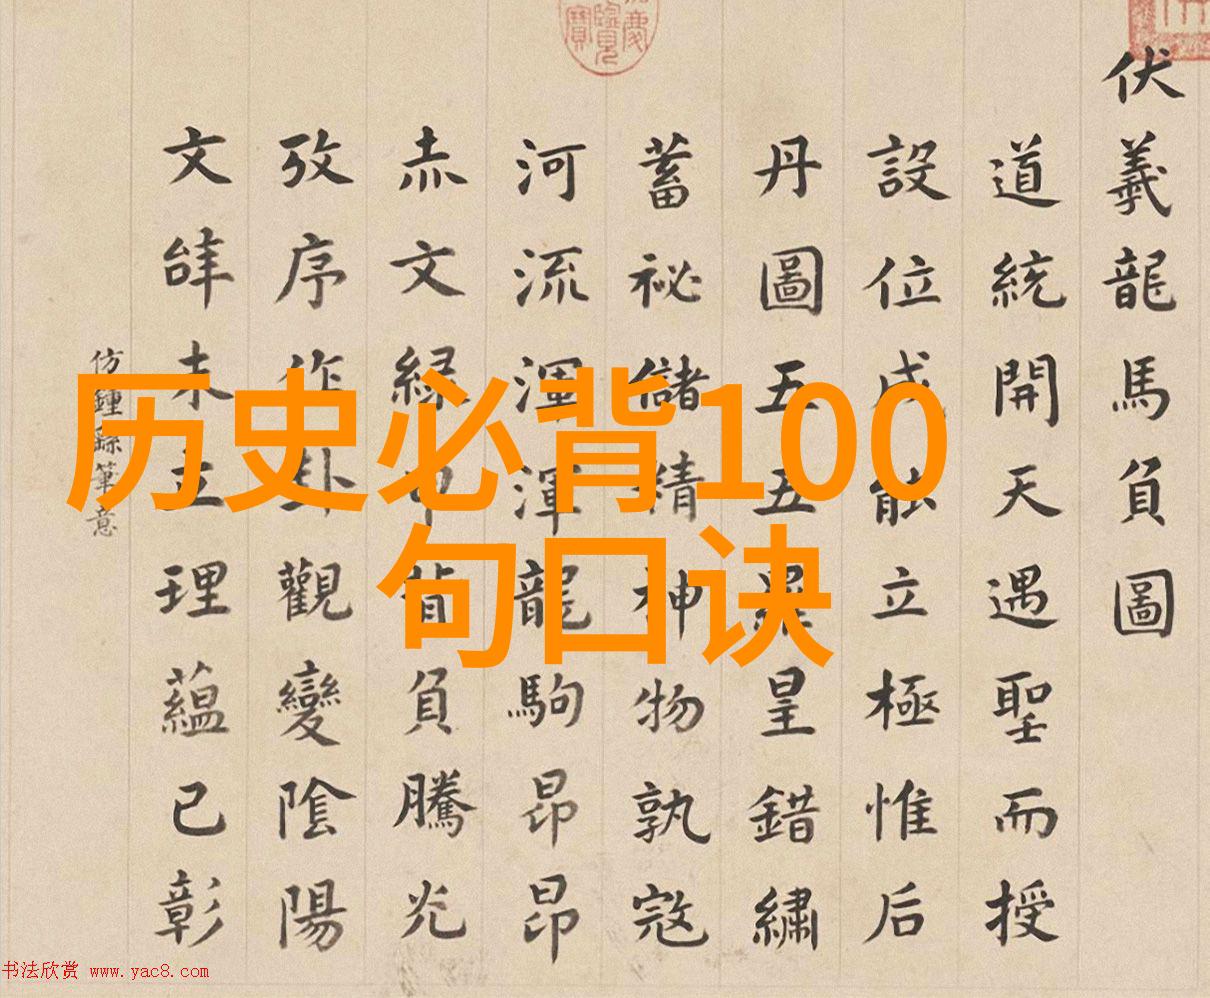 历史必背100
句口诀
伏羲龍馬負圖
道統開天遇聖而授
設位成能立極惟后
丹圖五五羅皇錯繡
蓄祕儲精神物孰寇
河流渾渾龍駒昂昂
赤文緑甲背負騰光
攷序作卦觀變陰陽
文辝未立理蘊已彰
仿鍾繇筆意
书法欣赏 www.yac8.com